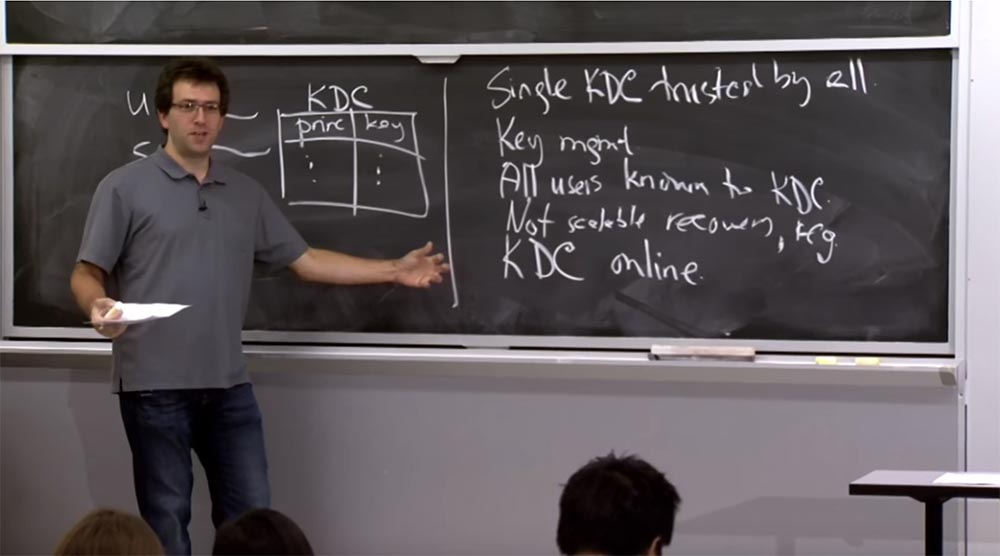 U
S
KDC
princ key
Single KDC trusted by all.
Key mgmt
All users known to KDC.
Not scalable recovery, reg.
KDC online.